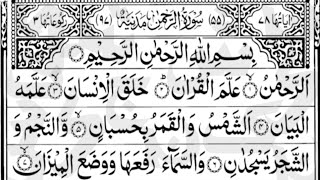 اٰيَاتُهَا ٧٨ (٥٥) سُوْرَةُ الرَّحْمٰنِ مَدَنِيَّةٌ (٩٧) رُكُوْعَاتُهَا ٣
بِسْمِ اللّٰهِ الرَّحْمٰنِ الرَّحِيْمِ
اَلرَّحْمٰنُ ۙ‏﴿۱﴾ عَلَّمَ الْقُرْاٰنَ ؕ‏﴿۲﴾ خَلَقَ الْاِنْسَانَ ۙ‏﴿۳﴾ عَلَّمَهُ
الْبَيَانَ ‏﴿۴﴾ اَلشَّمْسُ وَ الْقَمَرُ بِحُسْبَانٍ ‏﴿۵﴾ وَّ النَّجْمُ وَ
الشَّجَرُ يَسْجُدٰنِ ‏﴿۶﴾ وَ السَّمَآءَ رَفَعَهَا وَ وَضَعَ الْمِيْزَانَ ۙ‏﴿۷﴾